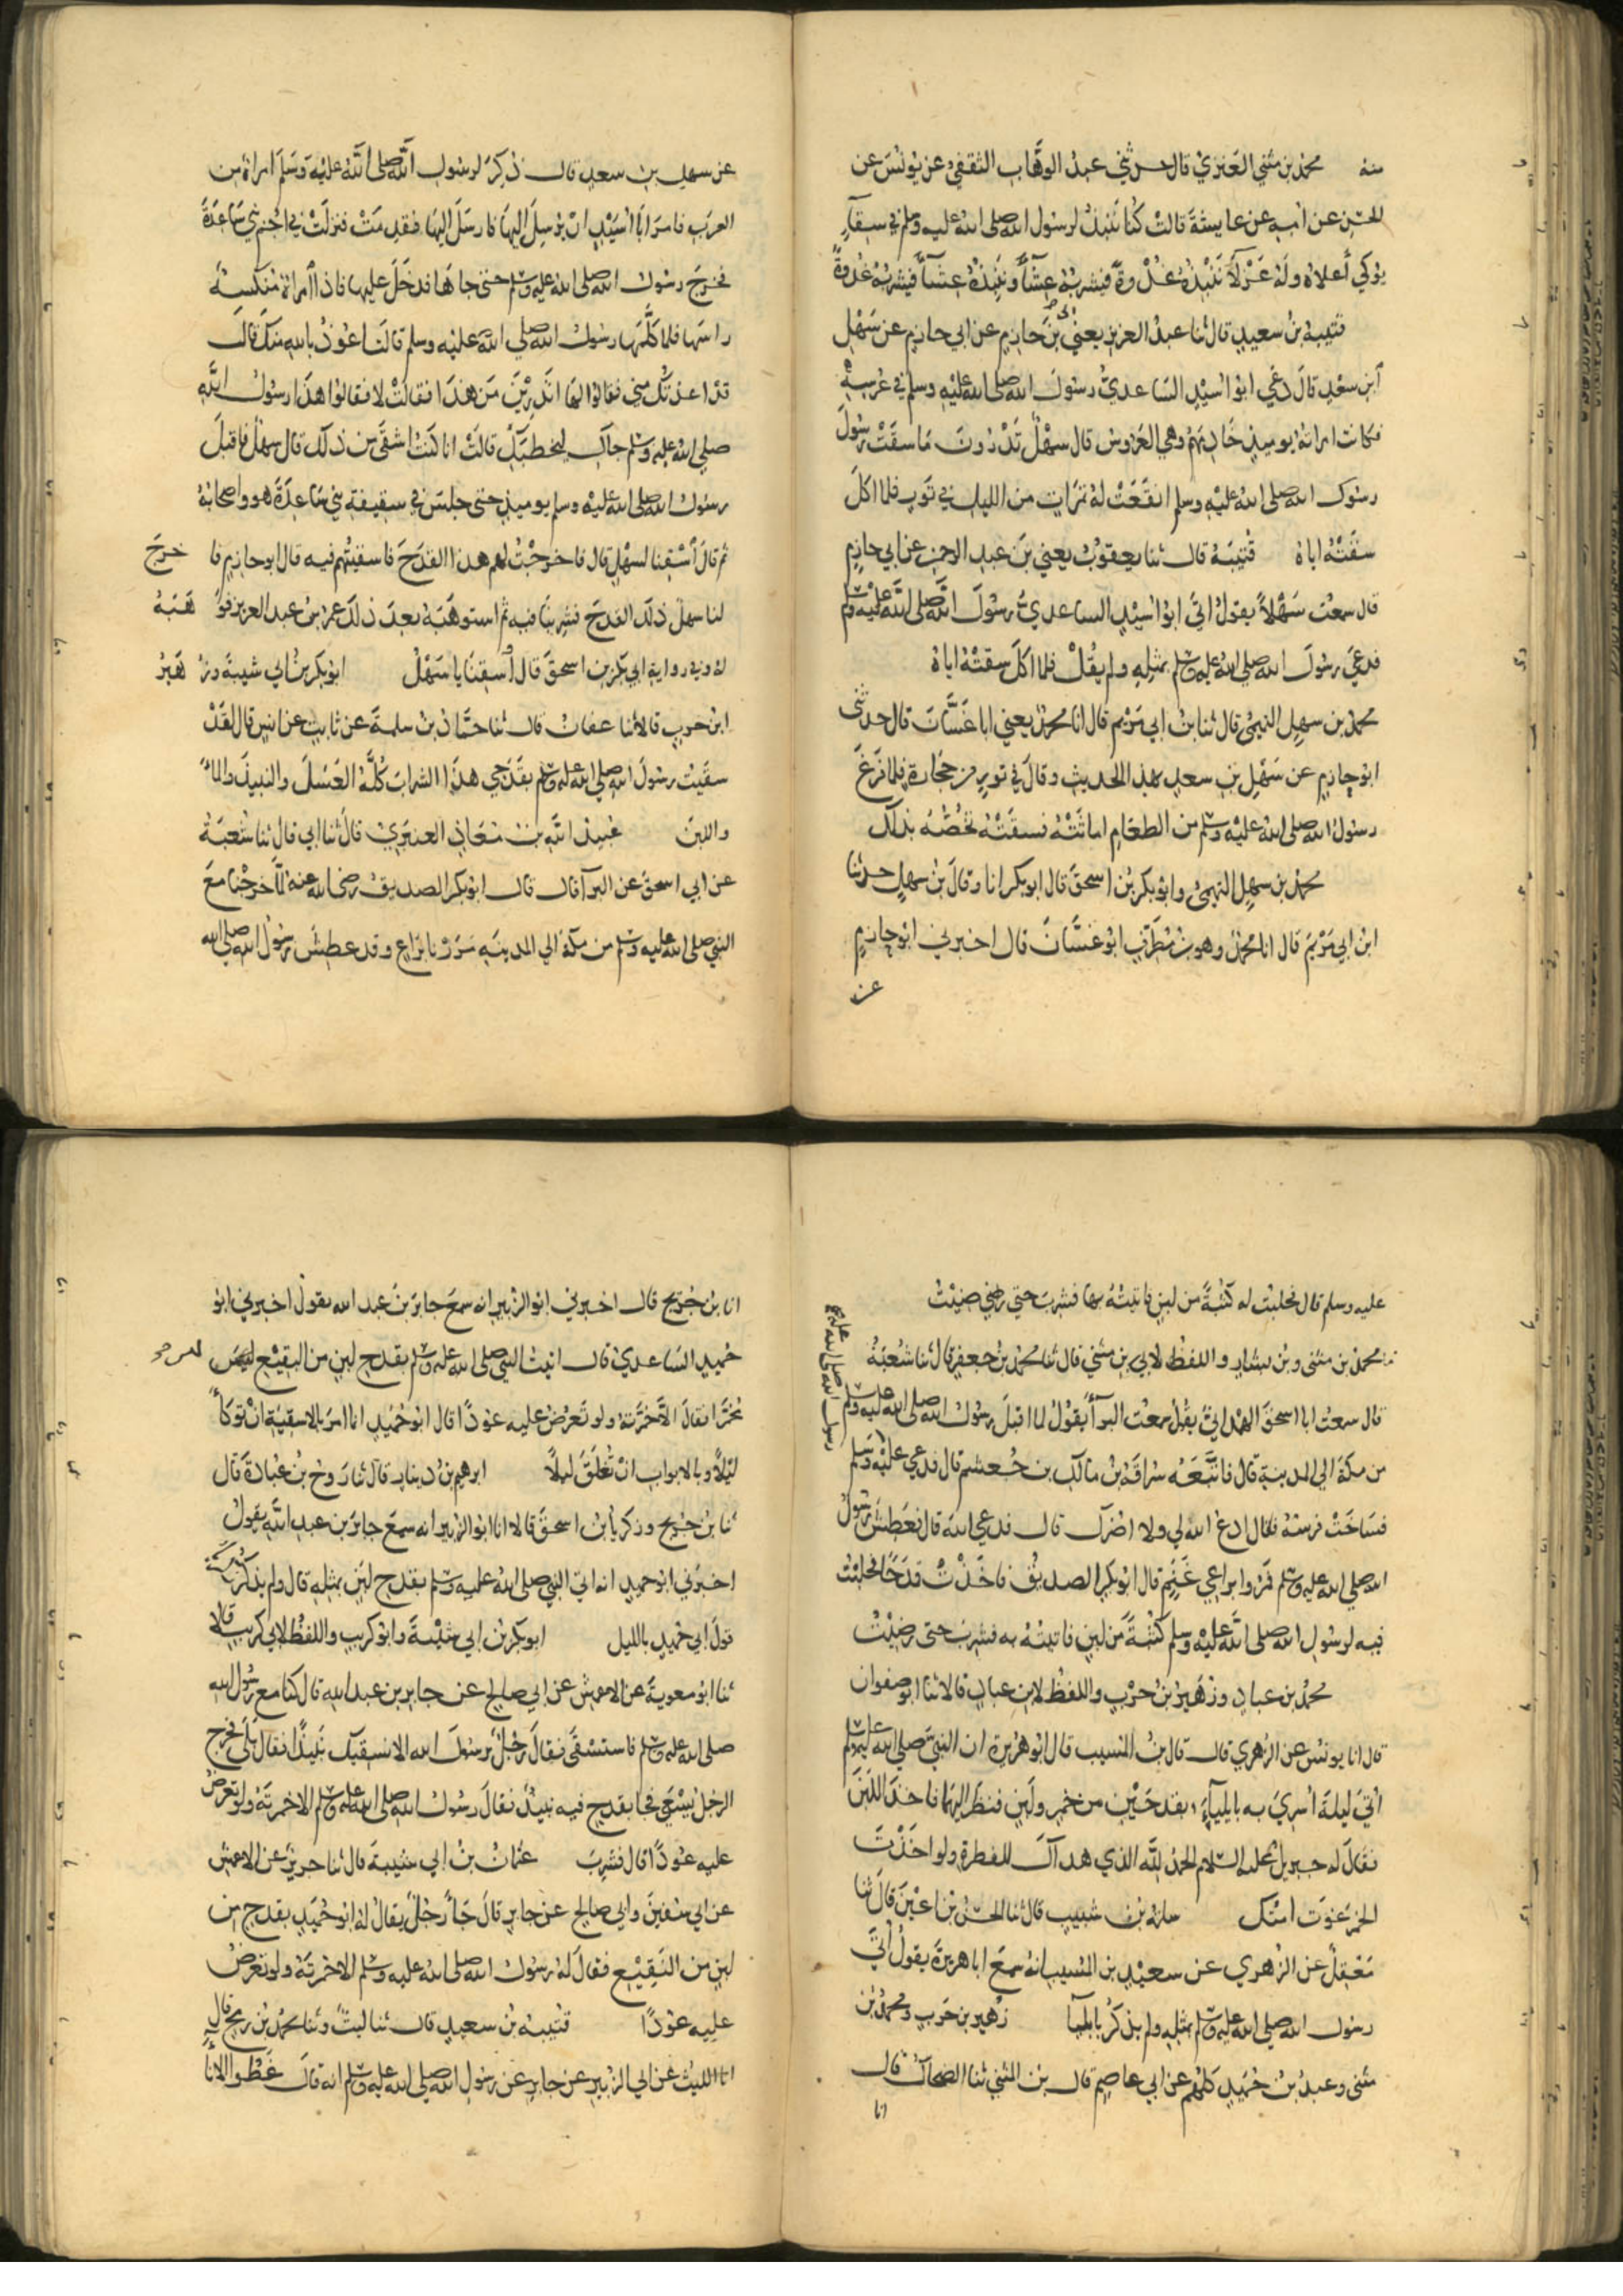 منه محمد بن مثنى العنزي قال حدثني عبد الوهاب الثقفي عن يونس عن
الحسن عن امه عن عايشة قالت كنا ننبذ لرسول الله صلى الله عليه وسلم في سقآء
يوكي أعلاه وله عزلآء ننبذه غدوة فيشربه عشآء وننبذه عشآء فيشربه غدوة
قتيبة بن سعيد قال ثنا عبد العزيز يعني بن ابي حازم عن ابي حازم عن سهل
ابن سعد قال دعي ابو اسيد الساعدي رسول الله صلى الله عليه وسلم في عرسه
فكانت امراته يوميذ خادمهم وهي العروس قال سهل تدرون ما سقت رسول
رسول الله صلى الله عليه وسلم انقعت له تمرات من الليل في تور فلما اكل
سقته اياه قتيبة قال ثنا يعقوب يعني بن عبد الرحمن عن ابي حازم
قال سمعت سهلا يقول اتى ابو اسيد الساعدي رسول الله صلى الله عليه وسلم
فدعى رسول الله صلى الله عليه وسلم بمثله ولم يقل فلما اكل سقته اياه
محمد بن سهل التيمي قال ثنا بن ابي مريم قال انا محمد يعني ابا غسان قال حدثني
ابو حازم عن سهل بن سعد بهذا الحديث وقال في تور من حجارة فلما فرغ
رسول الله صلى الله عليه وسلم من الطعام اماثته فسقته تخصه بذلك
محمد بن سهل التيمي وابو بكر بن اسحق قال ابو بكر انا وقال بن سهل حدثنا
ابن ابي مريم قال انا محمد وهو بن مطرف ابو غسان قال اخبرني ابو حازم
عن
عن سهل بن سعد قال ذكر لرسول الله صلى الله عليه وسلم امراة من
العرب فامر ابا اسيد ان يرسل اليها فارسل اليها فقدمت فنزلت في اجم بني ساعدة
فخرج رسول الله صلى الله عليه وسلم حتى جاها فدخل عليها فاذا امراة منكسة
راسها فلما كلمها رسول الله صلى الله عليه وسلم قالت اعوذ بالله منك قال
قد اعذتك مني فقالوا لها اتدرين من هذا فقالت لا فقالوا هذا رسول الله
صلى الله عليه وسلم جاك ليخطبك قالت انا كنت اشقى من ذلك قال سهل فاقبل
رسول الله صلى الله عليه وسلم يوميذ حتى جلس في سقيفة بني ساعدة هو واصحابه
ثم قال أسقنا لسهل قال فاخرجت لهم هذا القدح فاسقيتهم فيه قال ابو حازم فا خرج
لنا سهل ذلك القدح فشربنا فيه ثم استوهبه بعد ذلك عمر بن عبد العزيز فو هبه
له وفي رواية ابي بكر بن اسحق قال أسقنا يا سهل ابو بكر بن ابي شيبة وز هير
ابن حرب قالا ثنا عفان قال ثنا حماد بن سلمة عن ثابت عن انس قال لقد
سقيت رسول الله صلى الله عليه وسلم بقدحي هذا الشراب كله العسل والنبيذ والماء
واللبن عبيد الله بن معاذ العنبري قال ثنا ابي قال ثنا شعبة
عن ابي اسحق عن البرآ قال قال ابو بكر الصديق رضى الله عنه لما خرجنا مع
النبي صلى الله عليه وسلم من مكة الي المدينه مررنا براع وقد عطش رسول الله صلى الله
عليه وسلم قال فحلبت له كثبة من لبن فاتيته بها فشرب حتى رضيت
محمد بن مثنى وبن بشار واللفظ لابن مثني قال ثنا محمد بن جعفر قال ثنا شعبة
قال سمعت ابا اسحق الهمداني يقول سمعت البرآ يقول لما اقبل رسول الله صلى الله عليه وسلم
من مكة الي المدينة قال فاتبعه سراقة بن مالك بن جعشم قال فدعي عليه وسلم
رسول الله صلى الله عليه
فساخت فرسه فقال ادع الله لي ولا اضرك قال فدعى الله قال فعطش رسول
الله صلى الله عليه وسلم فمروا براعي غنم قال ابو بكر الصديق فاخذت قدحا فحلبت
فيه لرسول الله صلى الله عليه وسلم كثبة من لبن فاتيته به فشرب حتى رضيت
محمد بن عباد وزهير بن حرب واللفظ لابن عباد قالا ثنا ابو صفوان
قال انا يونس عن الزهري قال قال بن المسيب قال ابو هريرة ان النبي صلى الله عليه وسلم
اتي ليلة اسري به بايليآء بقدحين من خمر ولبن فنظر اليهما فاخذ اللبن
فقال له جبريل عليه السلام الحمد لله الذي هداك للفطرة ولو اخذت
الخمر غوت امتك سلمة بن شبيب قال ثنا الحسن بن اعين قال ثنا
معقل عن الزهري عن سعيد بن المسيب انه سمع ابا هريرة يقول اتي
رسول الله صلى الله عليه وسلم بمثله ولم يذكر بايليآ زهير بن حرب ومحمد بن
مثنى وعبد بن حميد كلهم عن ابي عاصم قال بن المثني ثنا الضحاك قال
انا
انا بن جريج قال اخبرني ابو الزبير انه سمع جابر بن عبد الله يقول اخبرني ابو
حميد الساعدي قال اتيت النبي صلى الله عليه وسلم بقدح لبن من البقيع ليس
مخمرا فقال الا خمرته ولو تعرض عليه عودا قال ابو حميد انما امر بالاسقية ان توكأ
ليلا وبالابواب ان تغلق ليلا ابرهيم بن دينار قال ثنا روح بن عبادة قال
ثنا بن جريج وزكريا بن اسحق قالا انا ابو الزبير انه سمع جابر بن عبد الله يقول
اخبرني ابو حميد انه اتى النبي صلى الله عليه وسلم بقدح لبن بمثله قال ولم يذكر زكرية
قول ابي حميد بالليل ابو بكر بن ابي شيبة وابو كريب واللفظ لابي كريب قالا
ثنا ابو معوية عن الاعمش عن ابي صالح عن جابر بن عبد الله قال كنا مع رسول الله
صلى الله عليه وسلم فاستسقى فقال رجل يرسول الله الا نسقيك نبيذا فقال بلى فخرج
الرجل يسعى فجا بقدح فيه نبيذ فقال رسول الله صلى الله عليه وسلم الا خمرته ولو تعرض
عليه عودا قال فشرب عثمان بن ابي شيبة قال ثنا جرير عن الاعمش
عن ابي سفين وابي صالح عن جابر قال جأ رجل يقال له ابو حميد بقدح من
لبن من النقيع فقال له رسول الله صلى الله عليه وسلم الا خمرته ولو تعرض
عليه عودا قتيبة بن سعيد قال ثنا ليث وثنا محمد بن رمح قال
انا الليث عن ابي الزبير عن جابر عن رسول الله صلى الله عليه وسلم انه قال غطوا الانأ